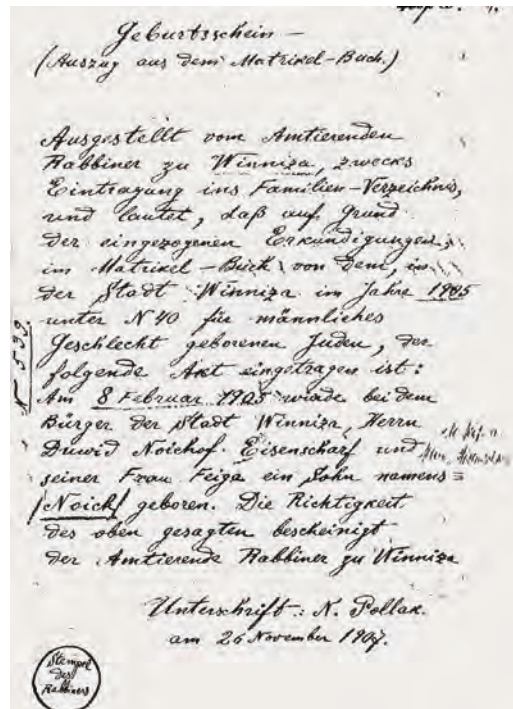 Geburtsschein –
(Auszug aus dem Matrikel-Buch.)
Ausgestellt vom Amtierenden
Rabbiner zu Winniza, zwecks
Eintragung ins Familien-Verzeichnis,
und lautet, daß auf Grund
der eingezogenen Erkundigungen,
im Matrikel-Buch von dem, in
der Stadt Winniza im Jahre 1905
unter N 40 für männliches
Geschlecht geborenen Juden, der
folgende Akt eingetragen ist:
Am 8 Februar 1905 wurde bei dem
Bürger der Stadt Winniza, Herrn
Duwid Noichof. Eisenscharf und
seiner Frau Feiga ein Sohn namens =
/Noich/ geboren. Die Richtigkeit
des oben gesagten bescheinigt
der Amtierende Rabbiner zu Winniza
Unterschrift: N. Pollak.
am 26 November 1907.
N 539
Stempel
des
Rabbiners